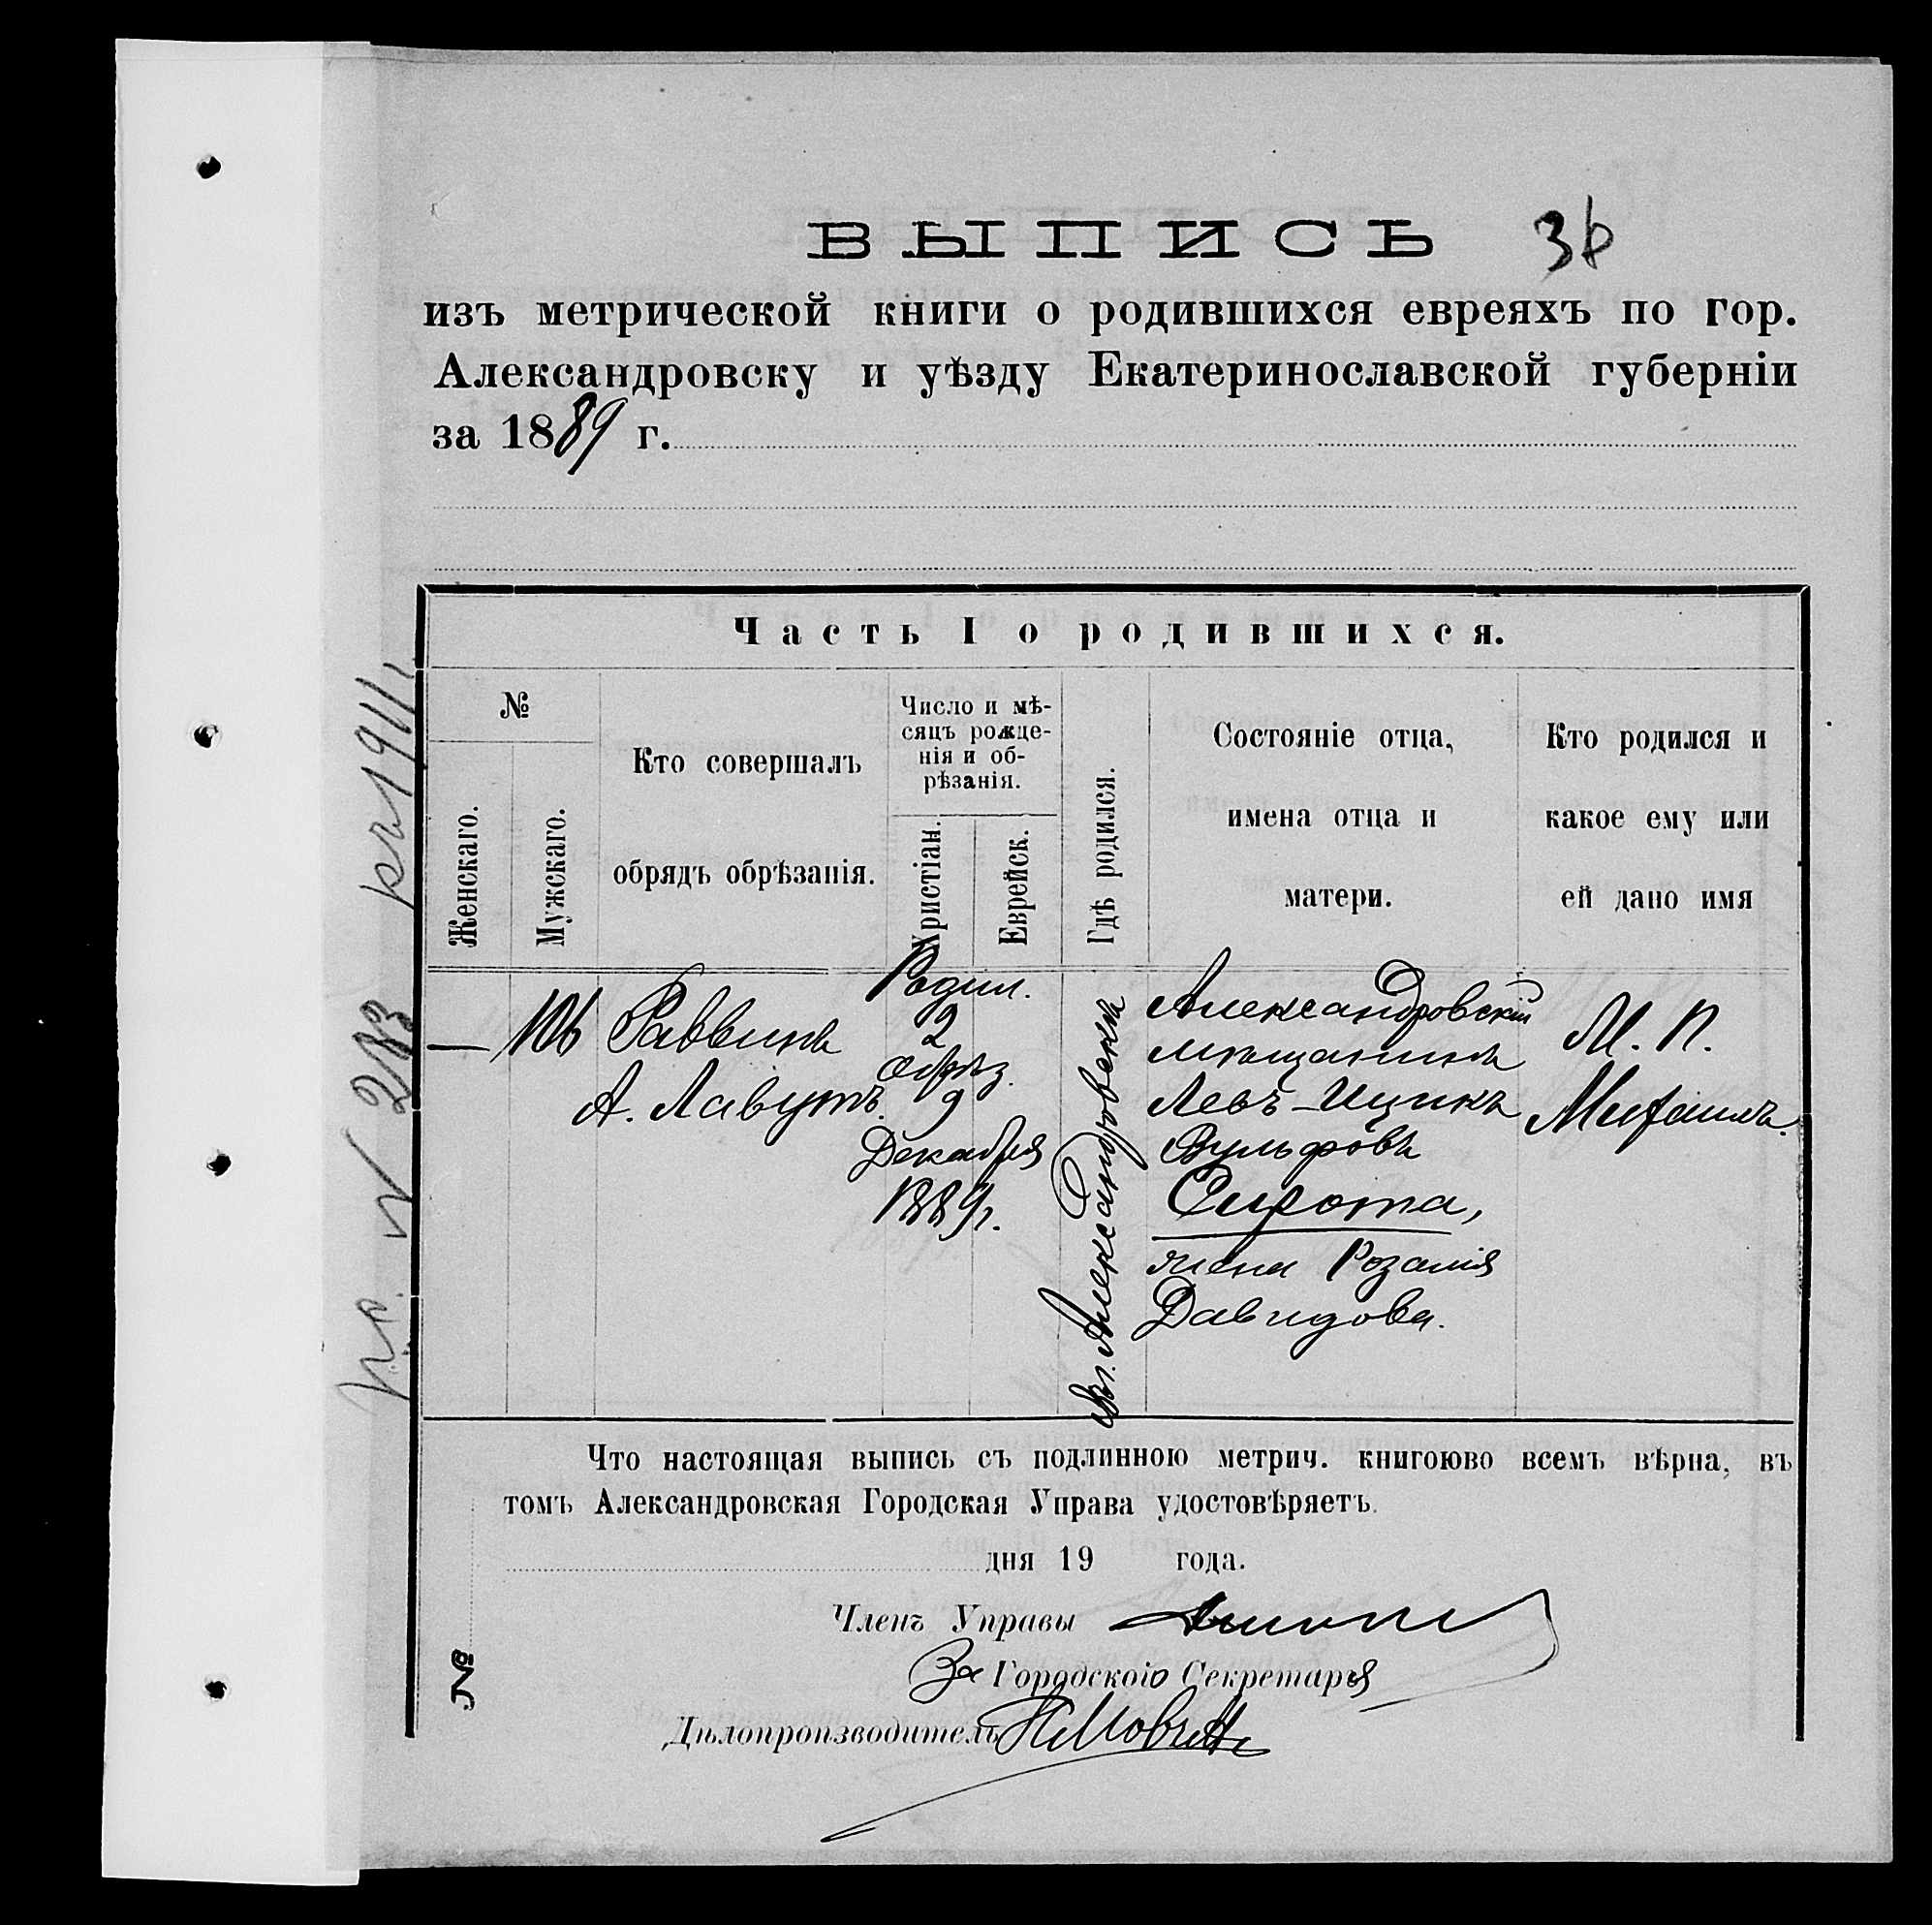 ВЫПИСЬ 36
изъ метрической книги о родившихся евреяхъ по гор.
Александровску и уѣзду Екатеринославской губерніи
за 1889 г.
Часть I о родившихся.
№
Женскаго.
Мужскаго.
Кто совершалъ
обрядъ обрѣзанія.
Число и мѣ-
сяцъ рожде-
нія и об-
рѣзанія.
Христіан.
Еврейск.
Гдѣ родился.
Состояніе отца,
имена отца и
матери.
Кто родился и
какое ему или
ей дано имя
—
106
Раввинъ
А. Лавутъ.
Родил.
2
Обрѣз.
9
Декабря
1889 г.
Александровскъ
Александровскій
мѣщанинъ
Левъ-Ицикъ
Вульфовъ
Сирота,
жена Розалія
Давидова.
М. П.
Михаилъ.
Что настоящая выпись съ подлинною метрич. книгоюво всемъ вѣрна, въ
томъ Александровская Городская Управа удостовѣряетъ.
дня 19 года.
Членъ Управы
За Городского Секретаря
Дѣлопроизводитель
№